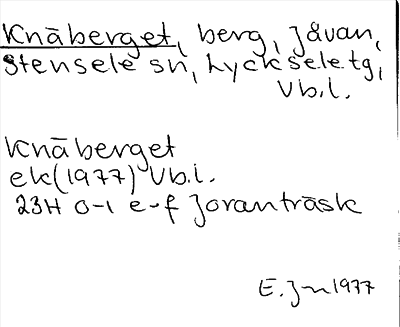 Knäberget, berg, Jåvan,
Stensele sn, Lycksele tg,
Vb.l.
Knäberget
ek(1977) Vb.l.
23H 0-1 e-f Joranträsk
E. Jn 1977